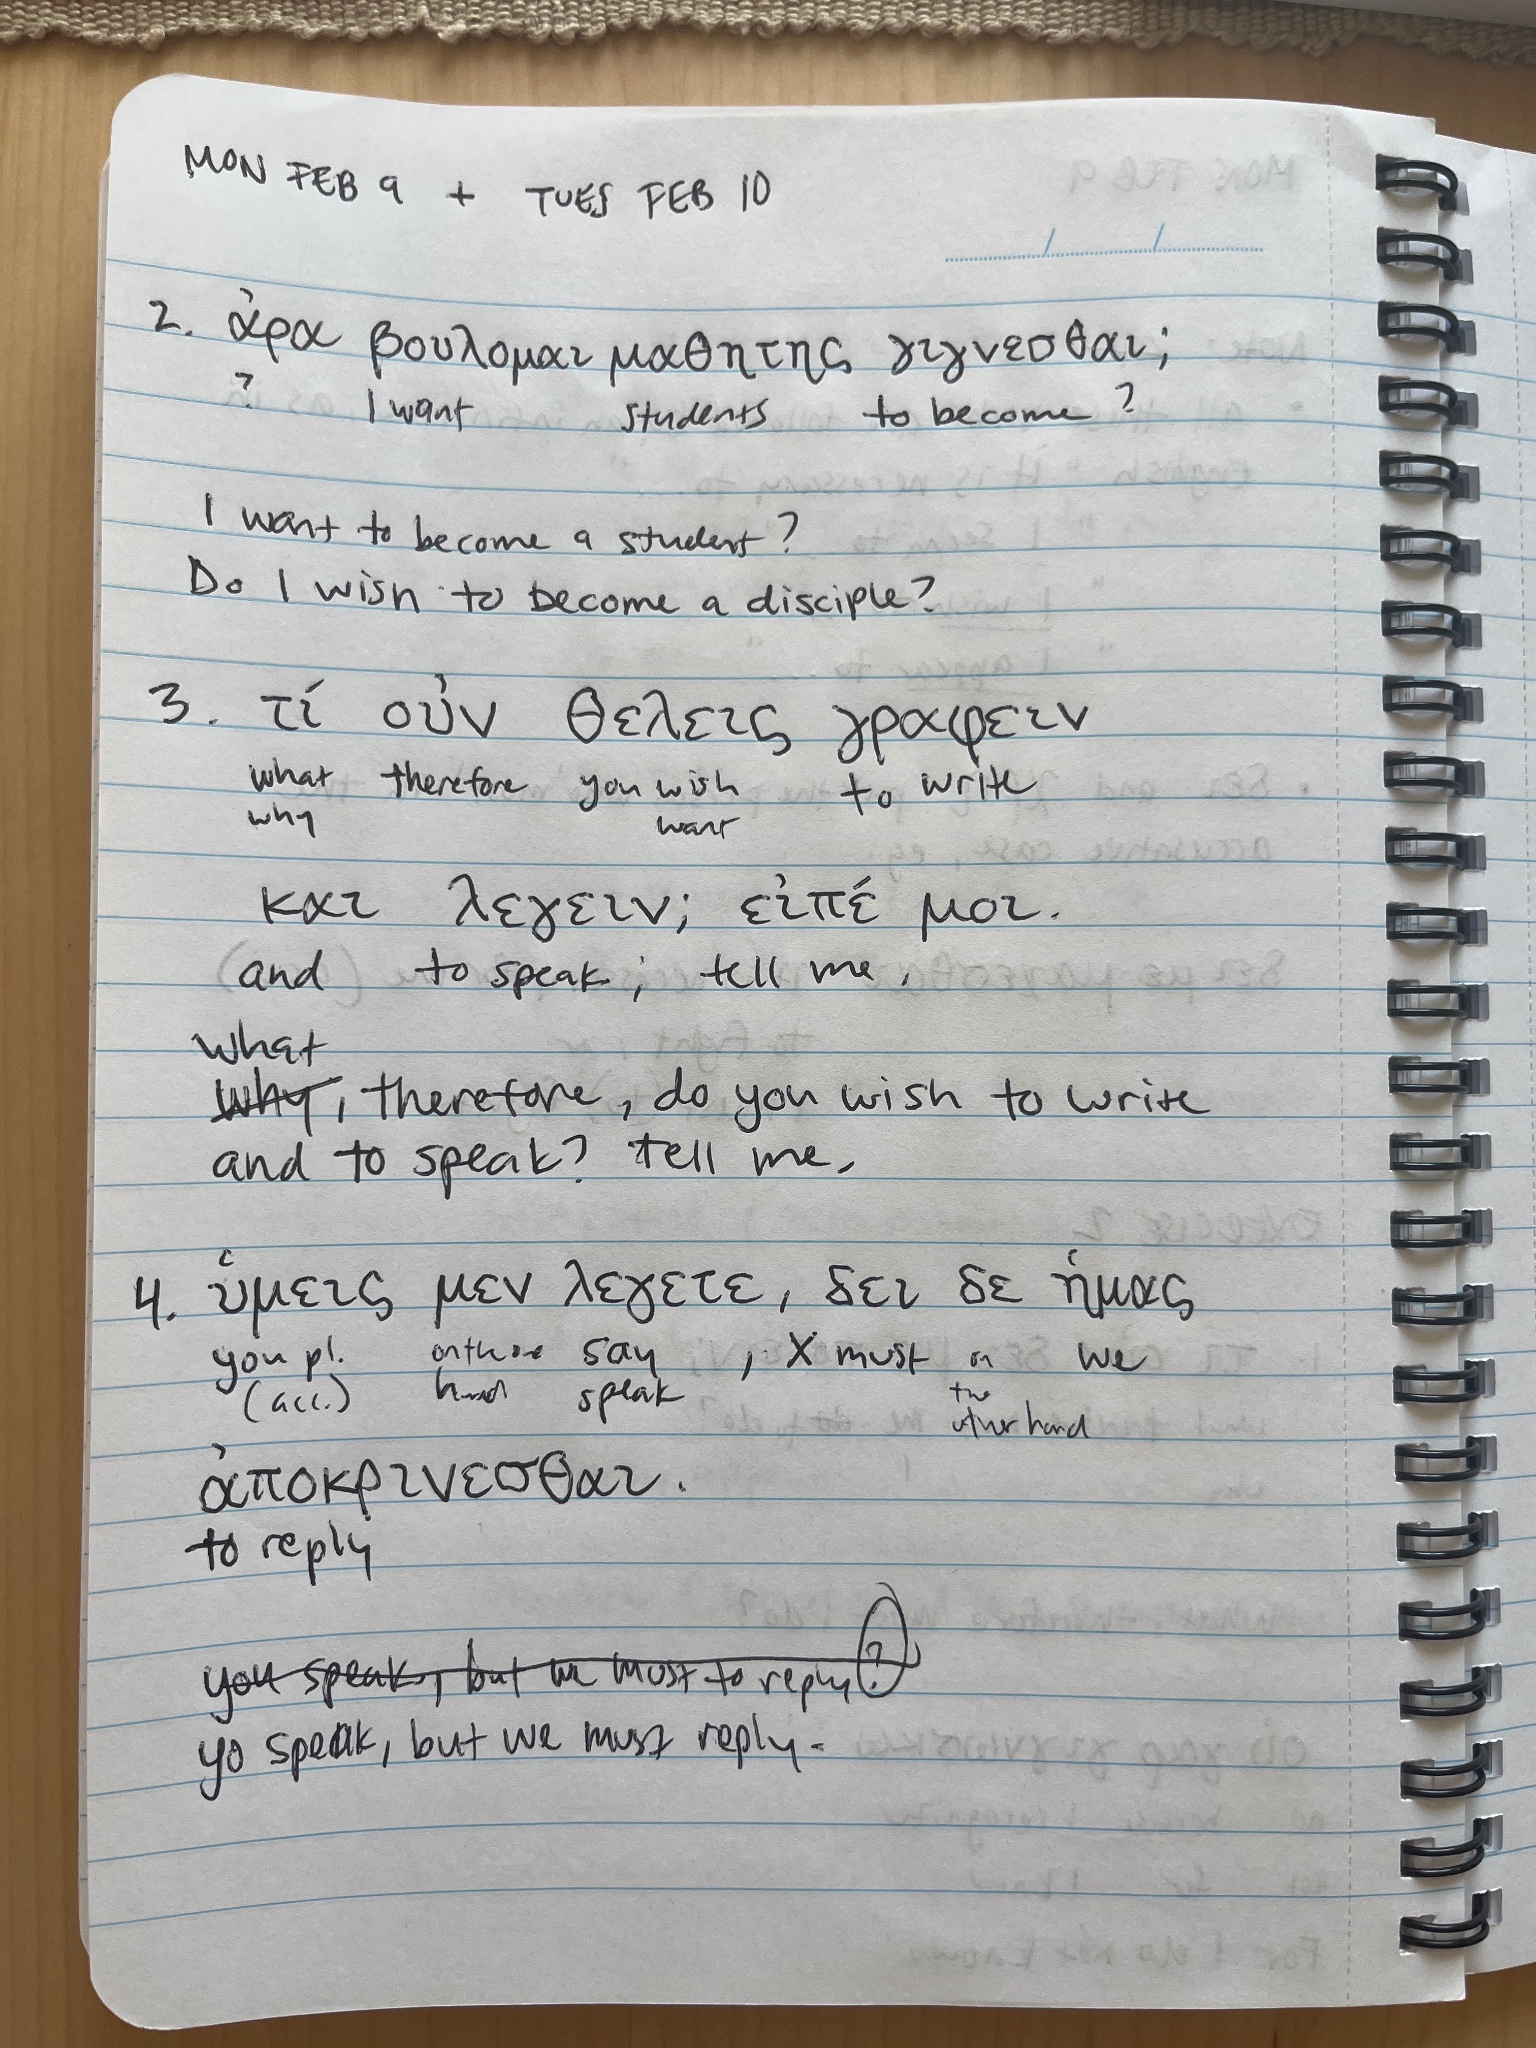 MON FEB 9 + TUES FEB 10
2. ἀρα βουλομαι μαθητης γιγνεσθαι;
? I want students to become?
I want to become a student?
Do I wish to become a disciple?
3. τί οὐν θελεις γραφειν
what therefore you wish to write
why want
και λεγειν; εἰπέ μοι.
and to speak; tell me.
what
why, therefore, do you wish to write
and to speak? tell me.
4. ὑμεις μεν λεγετε, δει δε ἡμας
you pl. on the one say, X must on we
(acc.) hand speak the
other hand
ἀποκρινεσθαι.
to reply
you speak, but we must to reply?
yo speak, but we must reply.